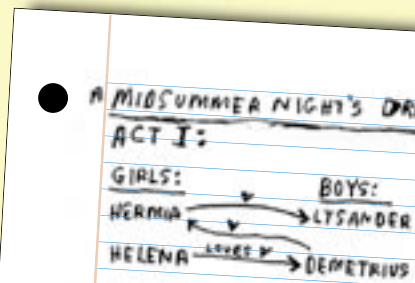 A MIDSUMMER NIGHT'S DR
ACT I:
GIRLS: BOYS:
HERMIA LYSANDER
LOVES
HELENA DEMETRIUS